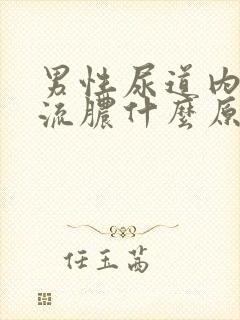 男性尿道内
流膿什麼原
任玉茜